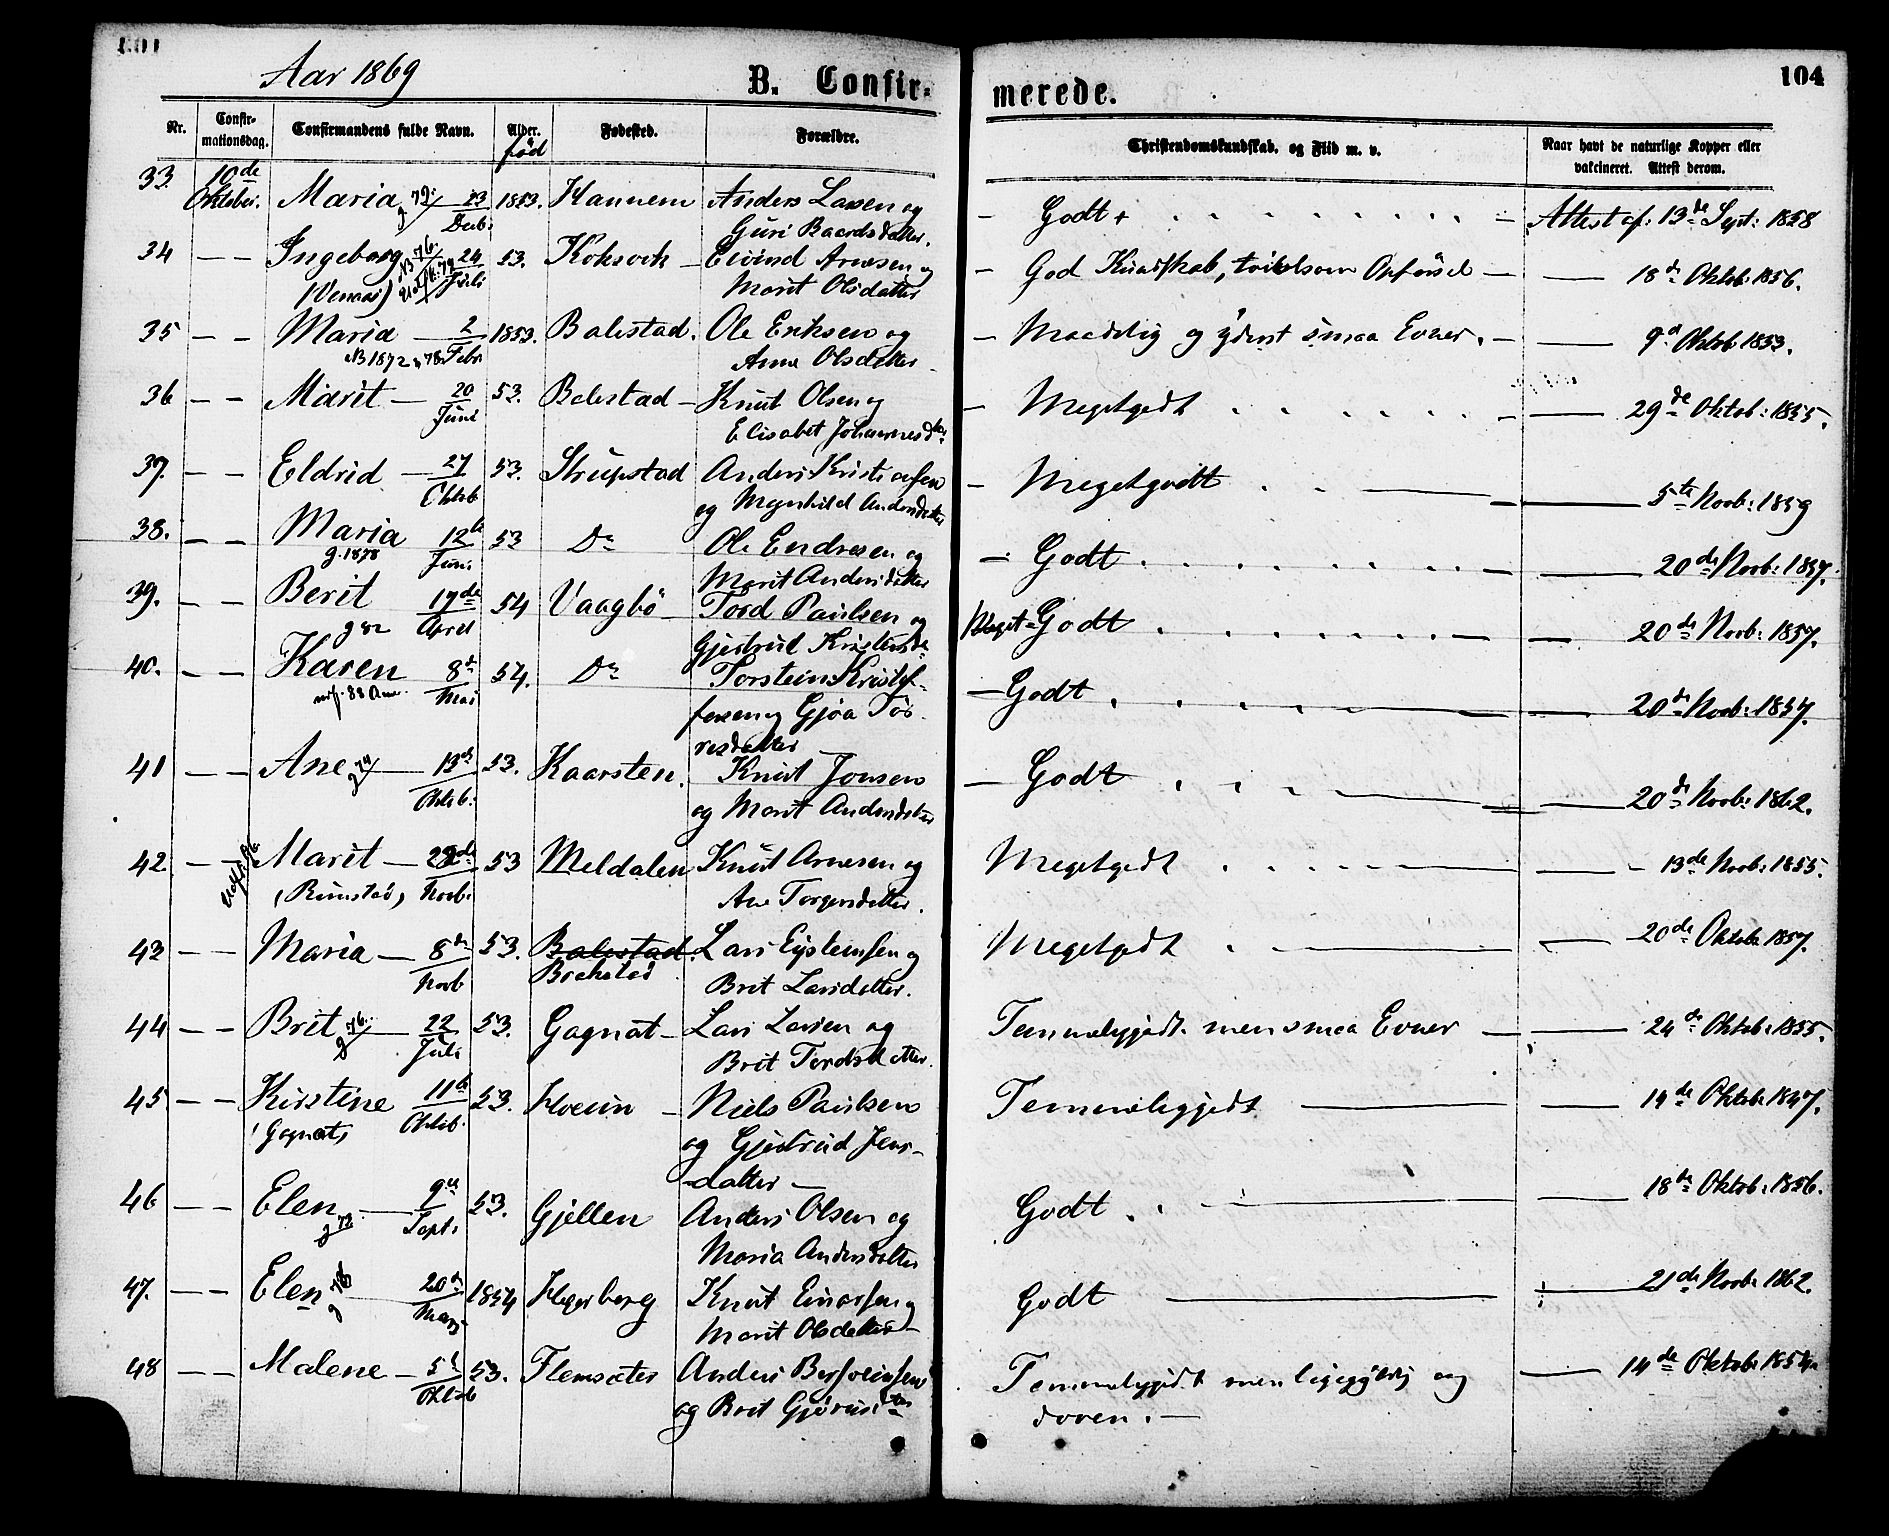 Aar 1869
B. Confir-
merede.
104
Nr.
Confir-
mationsdag.
Confirmandens fulde Navn.
Alder.
født
Fødested.
Forældre.
Christendomskundskab, og Flid m. v.
Naar havt de naturlige Kopper eller
vakcineret. Attest derom.
33. 10de Oktober. Maria 23 1853. Hannem Anders Larsen og
Guri Baardsdatter.
— Godt — Attest af: 13de Sept: 1858
34 — — Ingeborg 24 Juli 53. Koksvik — Eivind Arnesen og
Marit Olsdatter
— God Kundskab, tvivlsom Opførsel — 18de Oktob: 1856.
35 — — Maria — 2 Febr 1853. Balestad. Ole Eriksen og
Anne Olsdatter
— Maadelig og yderst smaa Evner. — 9d Oktob 1853.
36 — — Marit — 20 Juni 53. Balestad — Knut Olsen og
Elisabet Johannesdtr
— Megetgodt — 29de Oktob: 1855.
37. — — Eldrid — 27 Oktob 53. Strupstad Anders
og Andersdatter
— Megetgodt — 5te Novb: 1859
38. — — Maria 12te Juni 53 Do Ole Endresen og
g. 1878 Marit Andersdatter
— Godt — 20de Novb: 1857.
39. — — Berit 17de April 54 Vaagbø — Tord Paulsen og
g 82 Gjertrud
Meget- Godt — 20de Novb: 1857.
40. — — Karen 8de Mai 54. Do Torstein Kristof-
fersen og Gjøa To-
resdatter
— Godt — 20de Novb: 1857.
41 — — Ane 13de Oktob. 53. Kaarsten. Knut Jonsen
og Marit Andersdatter
— Godt — 20de Novb: 1862.
42. — — Marit — Novb. 53 Meldalen Knut Arnesen og
(Rimstad) Ane
Megetgodt — 13de Novb: 1855.
43 — — Maria — 8de Novb 53. Balestad. Lars Eysteinsen og
Brit Larsdatter.
Megetgodt — 20de Oktob. 1857.
44 — — Brit 76. — 22 Juli 53. Gagnat — Lars Larsen og
Brit Tordsdatter.
Temmeliggodt men smaa Evner — 24de Oktob: 1855.
45 — — Kirstine 11te Oktob. 53. — Niels Paulsen
(Gagnat) og Gjertrud Jens-
datter —
Temmeliggodt — 14de Oktob. 1857.
46 — — Elen — 9de Sept. 53. Gjellen Anders Olsen og
Maria Andersdatter
Godt — 18de Oktob. 1856.
47. — — Elen 20de Marz 1854 Knut Einarsen og
Marit Olsdatter —
Godt — 21de Novb: 1862.
48 — — Malene — 5te Oktob 53. Flemsæter Anders
og Brit
Temmeliggodt men ligegyldig og
doven. — 14de Oktob: 1854